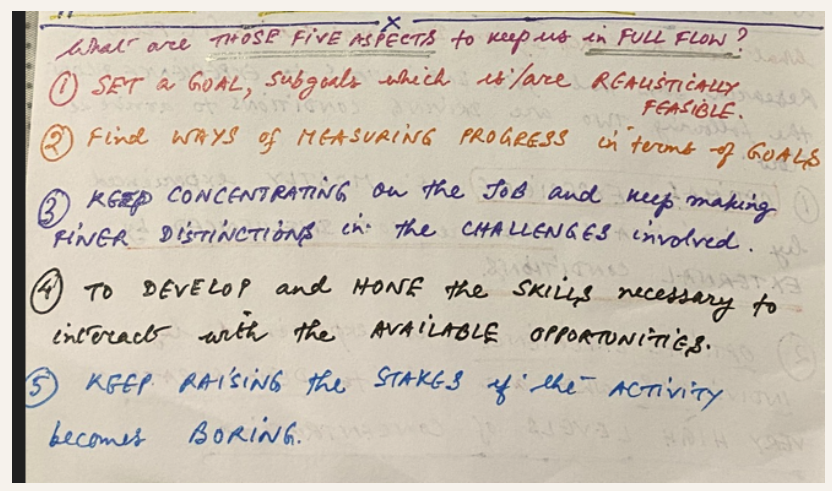 What are THOSE FIVE ASPECTS to keep us in FULL FLOW?
① SET a GOAL, subgoals which is/are REALISTICALLY
FEASIBLE.
② Find WAYS of MEASURING PROGRESS in terms of GOALS
③ KEEP CONCENTRATING on the JOB and keep making
FINER DISTINCTIONS in the CHALLENGES involved.
④ TO DEVELOP and HONE the SKILLS necessary to
interact with the AVAILABLE OPPORTUNITIES.
⑤ KEEP RAISING the STAKES if the ACTIVITY
becomes BORING.